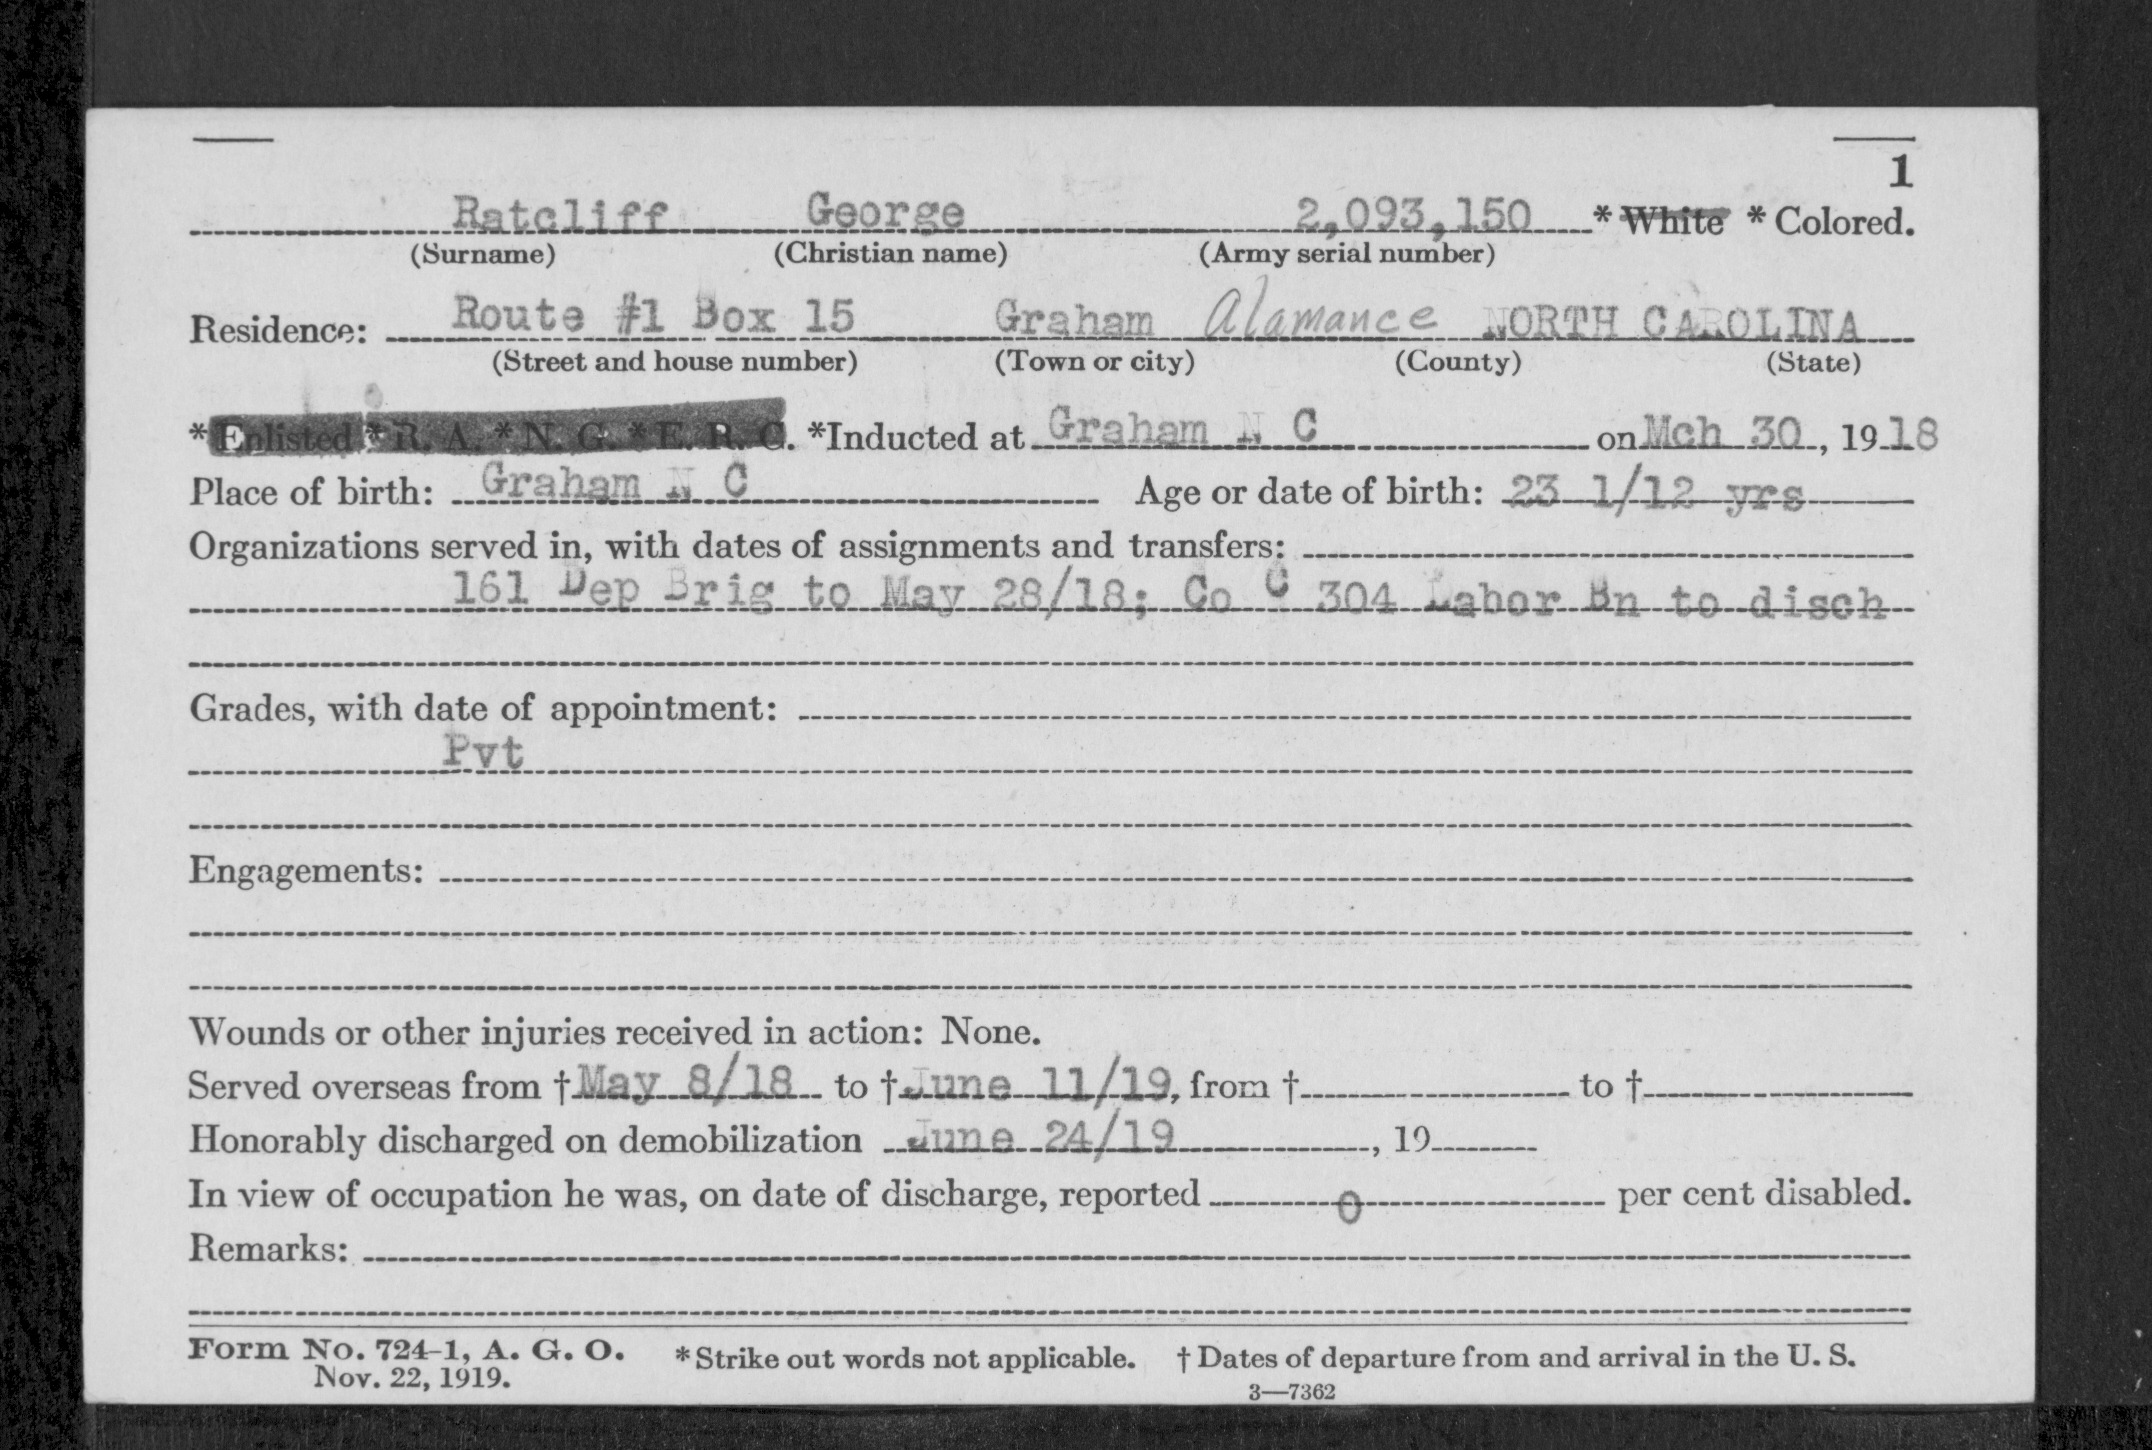 1
Ratcliff George 2,093,150 * White * Colored.
(Surname) (Christian name) (Army serial number)
Residence: Route #1 Box 15 Graham Alamance NORTH CAROLINA
(Street and house number) (Town or city) (County) (State)
*Enlisted *R. A. *N. G. *E. R. C. *Inducted at Graham N C on Mch 30, 1918
Place of birth: Graham N C Age or date of birth: 23 1/12 yrs
Organizations served in, with dates of assignments and transfers:
161 Dep Brig to May 28/18; Co C 304 Labor Bn to disch
Grades, with date of appointment:
Pvt
Engagements:
Wounds or other injuries received in action: None.
Served overseas from † May 8/18 to † June 11/19, from † to †
Honorably discharged on demobilization June 24/19, 19
In view of occupation he was, on date of discharge, reported 0 per cent disabled.
Remarks:
Form No. 724-1, A. G. O. *Strike out words not applicable. † Dates of departure from and arrival in the U. S.
Nov. 22, 1919.
3—7362